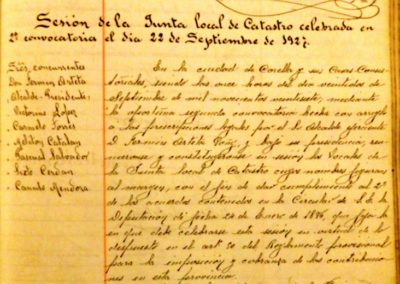 Sesión de la Junta local de Catastro celebrada en
2ª convocatoria el dia 22 de Septiembre de 1927.
Sres. concurrentes
Don Fermin Arteta
Alcalde-Presidente
Victorino Lopez
Carmelo
Catalan
Pascual Salvador
Sixto Cerdan
Mendora
En la ciudad de Corella y sus Casas Consis-
toriales, siendo las once horas del dia veintidos de
Septiembre de mil novecientos veintisiete, mediante
la oportuna segunda convocatoria hecha con arreglo
a las prescripciones legales por el Sr Alcalde
D Fermin Arteta y bajo su presidencia, reu-
nieronse y constituyeronse en sesión los Vocales de
la Junta local de Catastro cuyos nombres figuran
al margen, con el fin de dar cumplimiento al 2º
de los acuerdos contenidos en la Circular de S.E. la
Diputación de fecha 24 de Enero de que fija la
en que debe celebrarse esta sesión en virtud de lo
dispuesto en el artº 70 del Reglamento provisional
para la imposición y cobranza de las contribucio-
nes en esta provincia.